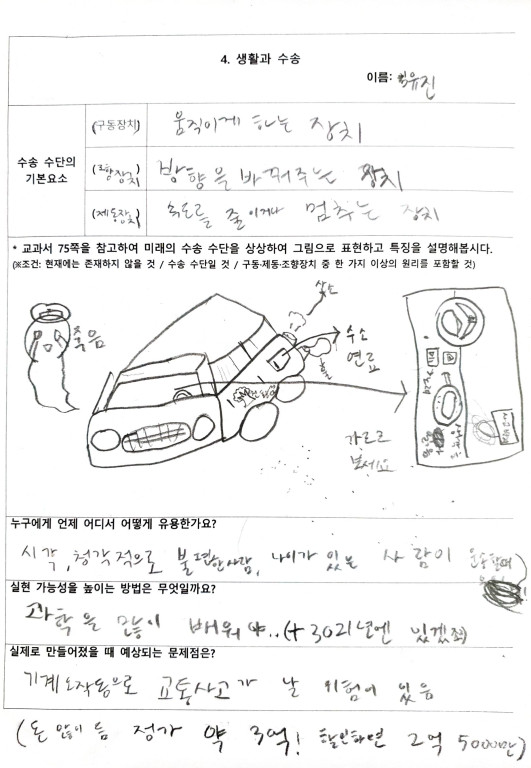 4. 생활과 수송
이름: 유진
수송 수단의
기본요소
(구동장치) 움직이게 하는 장치
(조향장치) 방향을 바꿔주는 장치
(제동장치) 속도를 줄이거나 멈추는 장치
* 교과서 75쪽을 참고하여 미래의 수송 수단을 상상하여 그림으로 표현하고 특징을 설명해봅시다.
(※조건: 현재에는 존재하지 않을 것 / 수송 수단일 것 / 구동·제동·조향장치 중 한 가지 이상의 원리를 포함할 것)
죽음
산소
수소
연료
가르르
보세요
누구에게 언제 어디서 어떻게 유용한가요?
시각, 청각적으로 불편한 사람, 나이가 있는 사람이 운송할때
실현 가능성을 높이는 방법은 무엇일까요?
과학을 많이 배워야..(+3021년엔 있겠죠)
실제로 만들어졌을 때 예상되는 문제점은?
기계 오작동으로 교통사고가 날 위험이 있음
(돈 많이 듬 정가 약 3억! 할인하면 2억 5000만)